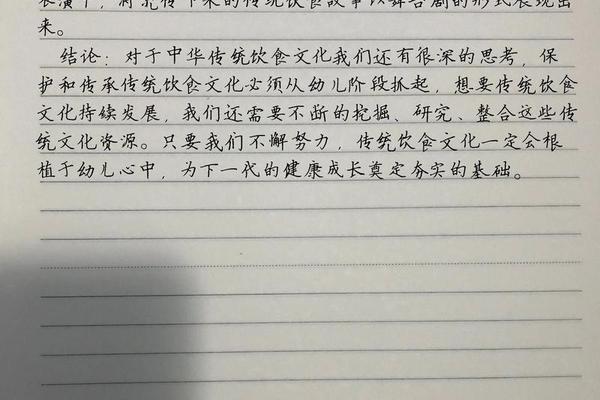 表演中，将流传下来的传统饮食故事以舞台剧的形式展现出
来。
结论：对于中华传统饮食文化我们还有很深的思考，保
护和传承传统饮食文化必须从幼儿阶段抓起，想要传统饮食
文化持续发展，我们还需要不断的挖掘、研究、整合这些传
统文化资源。只要我们不懈努力，传统饮食文化一定会根
植于幼儿心中，为下一代的健康成长奠定夯实的基础。